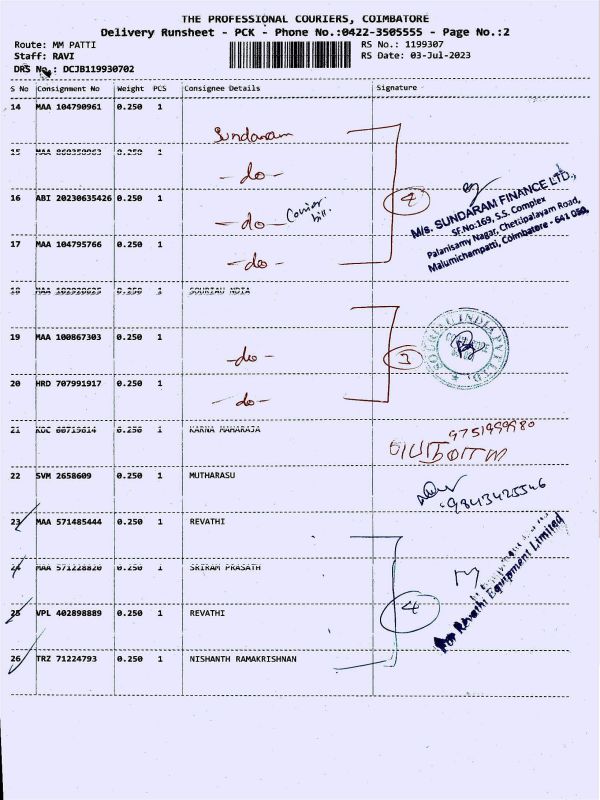 THE PROFESSIONAL COURIERS, COIMBATORE
Delivery Runsheet - PCK - Phone No.:0422-3505555 - Page No.:2
Route: MM PATTI
RS No.: 1199307
Staff: RAVI
RS Date: 03-Jul-2023
DRS No.: DCJB119930702
S No Consignment No Weight PCS Consignee Details Signature
14 MAA 104790961 0.250 1
Sundaram
15 MAA 0.250 1
-do-
16 ABI 20230635426 0.250 1
-do- Courier
bill.
4
M/s. SUNDARAM FINANCE LTD.,
SF.No:169, S.S. Complex
Palanisamy Nagar, Chettipalayam Road,
Malumichampatti, Coimbatore - 641 050.
17 MAA 104795766 0.250 1
-do-
18 MAA 0.250 1 SOURIAU NDIA
19 MAA 100867303 0.250 1
-do-
3
SOURIAU INDIA PVT LTD.
20 HRD 707991917 0.250 1
-do-
21 KDC 0.250 1 KARNA MAHARAJA
9751999980
22 SVM 2658609 0.250 1 MUTHARASU
9843425546
23 MAA 571485444 0.250 1 REVATHI
24 MAA 571228820 0.250 1 SRIRAM PRASATH
25 VPL 402898889 0.250 1 REVATHI
4
For Revathi Equipment Limited
26 TRZ 71224793 0.250 1 NISHANTH RAMAKRISHNAN